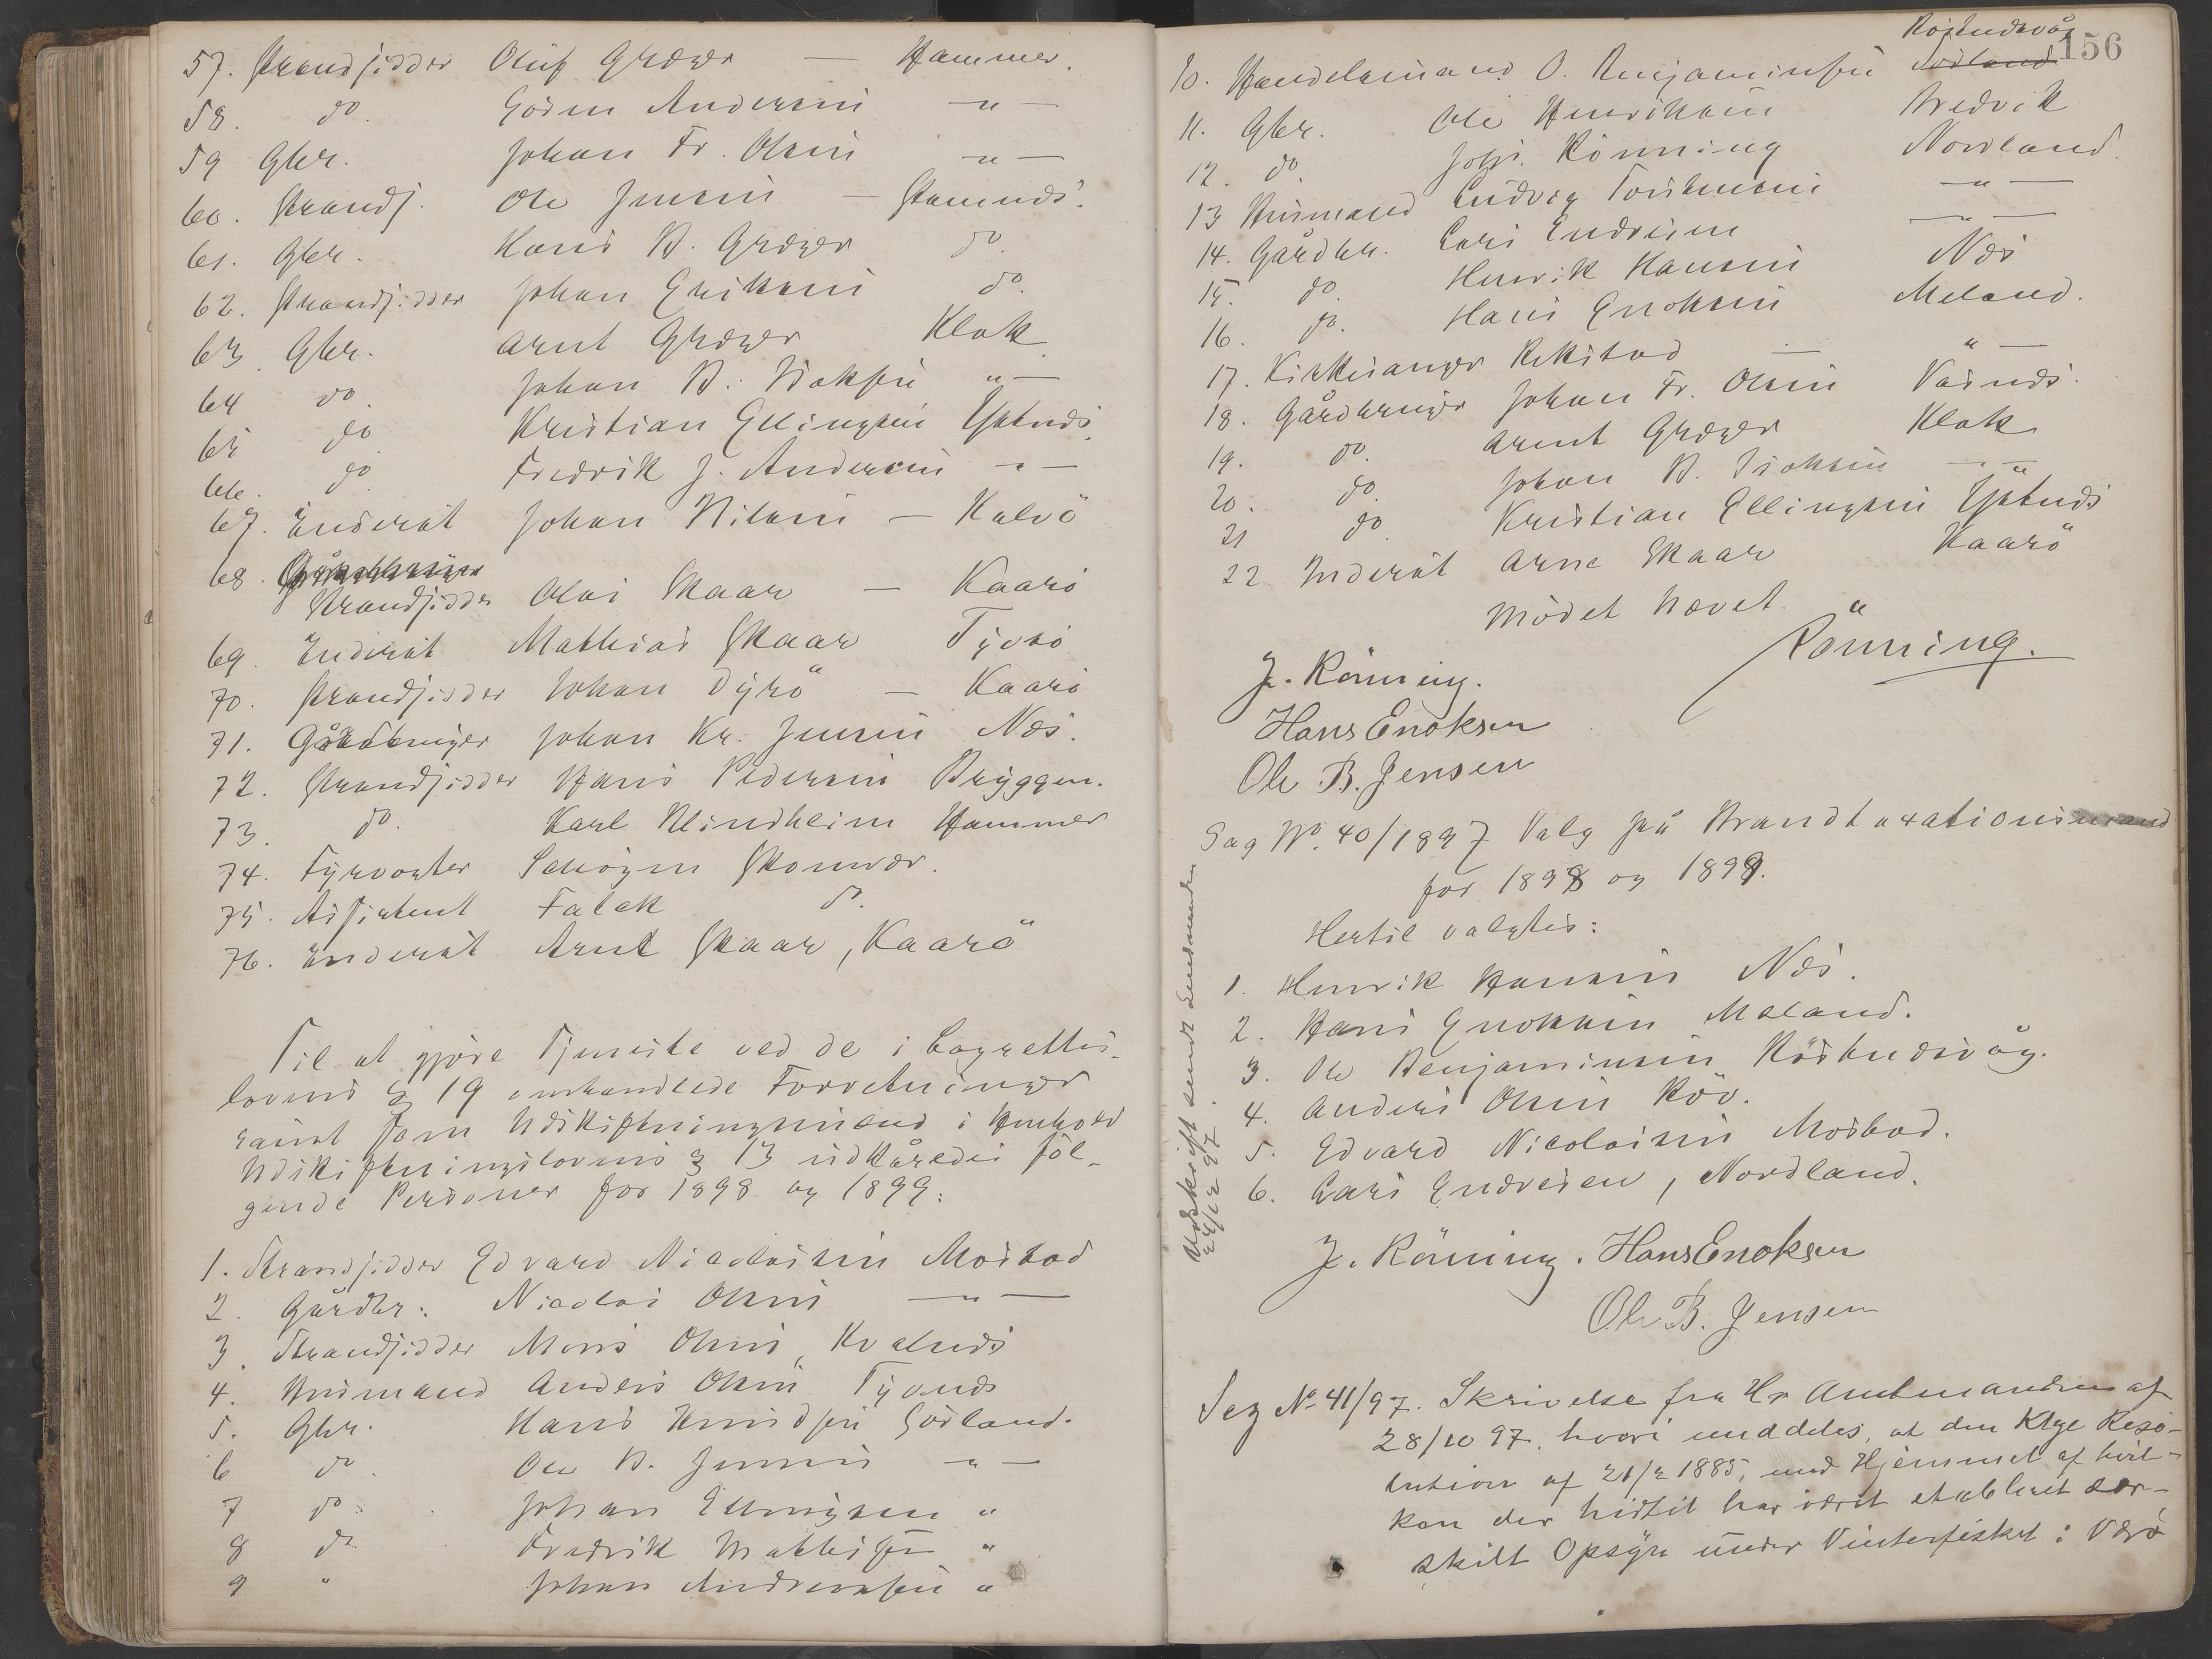 57. Strandsidder Oluf Greger — Hammer.
58. do. Edvin Andersen —"—
59 Gbr. Johan Fr. Olsen —"—
60. Strands. Ole Jensen —
61. Gbr. Hans B. Greger do.
62. Strandsidder Johan Eriksen do.
63 Gbr. Arnt Greger Klak
64 do. Johan B. Isaksen "—
65 do Kristian Ellingsen Ystnes.
66. do. Fredrik J. Andersen —"—
67. Inderst Johan Nilsen — Kalvö
68. Gårdbruger
Strandsidder Olai Skaar — Kaarö
69. Inderst Mathias Skaar Tyvsö
70. Strandsidder Johan Dyrö — Kaarö
71. Gårdbruger Johan Kr. Jensen Næs.
72. Strandsidder Hans Pedersen Bryggen.
73. do. Karl Blindheim Hammer
74. Fyrvogter Schögen Skomvær.
75. Assistent Falck do.
76. Inderst Arnt Skaar, Kaarö
Til at gjöre Tjeneste ved de i Lagrettes-
lovens § 19 omhandlede Forretninger
samt som Udskiftningsmænd i Henhold
Udskiftningslovens § 13 udkåredes föl-
gende Personer for 1898 og 1899:
1. Strandsidder Edvard Nicolaisen Mosbad
2. Gårdbr. Nicolai Olsen —"—
3. Strandsidder Mons Olsen, Kvalnes
4. Husmand Anders Olsen Tyvnes
5. Gbr. Hans Knudsen Sörland.
6 do. Ole B. Jensen —"—
7 do. Johan Ellingsen "
8 do Fredrik Mathisen "
9 " Johan Andreassen "
156
Röstnesvåg
10. Handelsmand O. Benjaminsen Sörland
11. Gbr. Ole Henriksen Bredvik
12. do. Johs. Rönning Nordland.
13 Husmand Ludvig Torstensen —"—
14. Gårdbr. Lars Endresen —"—
15. do. Henrik Hansen Næs
16. do. Hans Enoksen Meland.
17. Kirkesanger Rekstad — "—
18. Gårdbruger Johan Fr. Olsen
19. do. Arnt Greger Klak
20. do. Johan B. Isaksen —"—
21 do. Kristian Ellingsen Ystnes
22 Inderst Arne Skaar Kaarö
Mödet hævet.
Rönning.
J. Rönning.
Hans Enoksen
Ole B. Jensen
Sag No. 40/1897 Valg på Brandtaxationsmænd
for 1898 og 1899.
Hertil valgtes:
1. Henrik Hansen Næs.
2. Hans Enoksen Meland.
3. Ole Benjaminsen Röstnesvåg.
4. Anders Olsen Röv.
5. Edvard Nicolaisen Mosbad.
6. Lars Endresen, Nordland.
J. Rönning. Hans Enoksen
Ole B. Jensen
Udskrift sendt Lensmanden
24/12 97.
Sag No 41/97. Skrivelse fra Hr Amtmanden af
28/10 97. hvori meddeles, at den Klge Reso-
lution af 21/2 1885, med Hjemmel af hvil-
ken der hidtil har været etableret sær-
skilt Opsyn under Vinterfisket i Værö